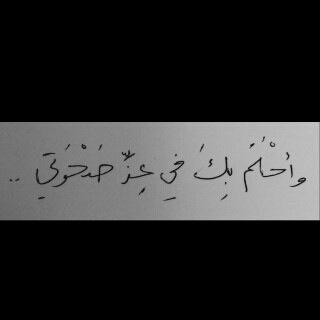 وأحْلَمُ بِكَ في عِزّ صَحْوَتي ..